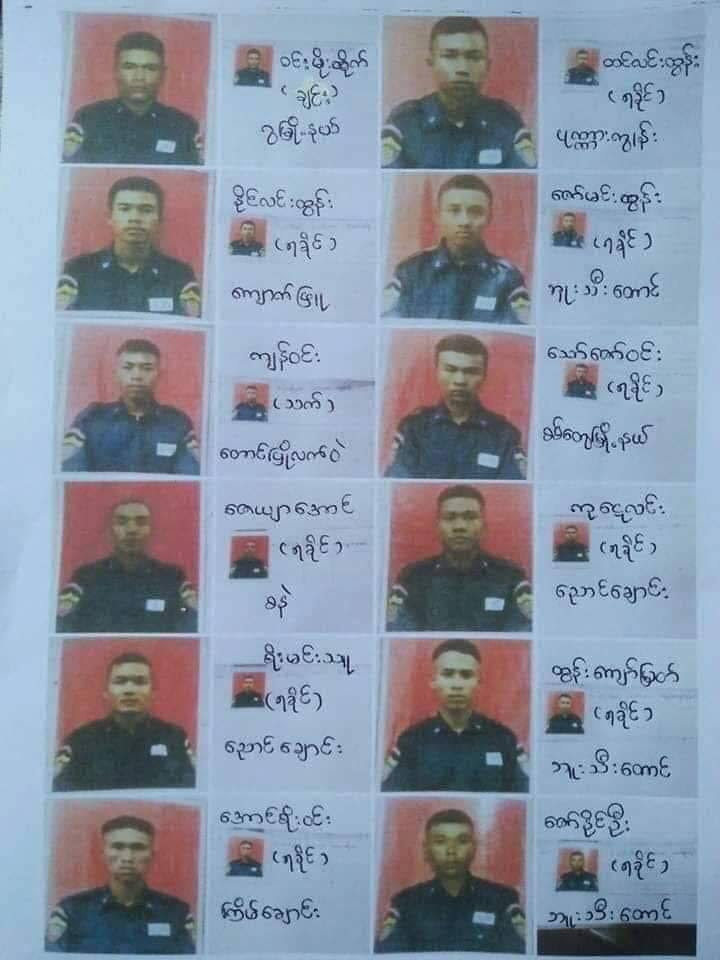 ဝင်းမိုးထိုက်
(ချင်း)
ဂွမြို့နယ်
တင်လင်းထွန်း
(ရခိုင်)
ပုဏ္ဏားကျွန်း
နိုင်လင်းထွန်း
(ရခိုင်)
ကျောက်ဖြူ
ဇော်မင်းထွန်း
(ရခိုင်)
ဘူးသီးတောင်
ကျန်ဝင်း
(သက်)
တောင်ပြိုလက်ဝဲ
သော်ဇော်ဝင်း
(ရခိုင်)
စစ်တွေမြို့နယ်
ဇေယျာအောင်
(ရခိုင်)
စနဲ
(ရခိုင်)
ညောင်ချောင်း
စိုးမင်းသူ
(ရခိုင်)
ညောင်ချောင်း
ထွန်းကျော်မြတ်
(ရခိုင်)
ဘူးသီးတောင်
အောင်စိုးဝင်း
(ရခိုင်)
ကြိမ်ချောင်း
ဇော်နိုင်ဦး
(ရခိုင်)
ဘူးသီးတောင်